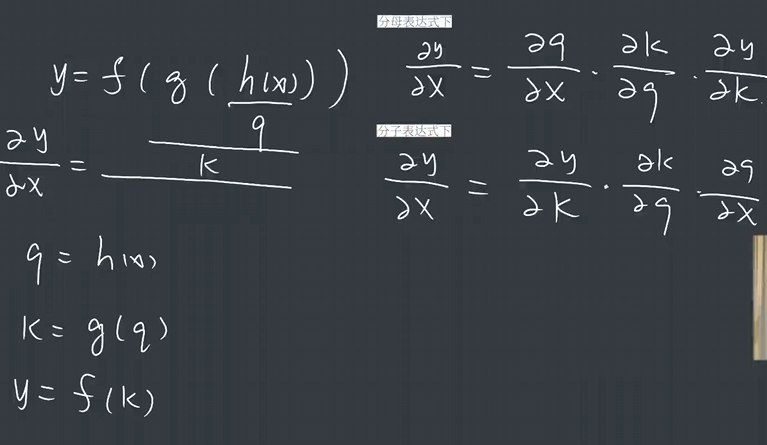 y = f(g(h(x)))
q
k
∂y/∂x =
q = h(x)
k = g(q)
y = f(k)
分母表达式下
∂y/∂x = ∂q/∂x · ∂k/∂q · ∂y/∂k
分子表达式下
∂y/∂x = ∂y/∂k · ∂k/∂q · ∂q/∂x